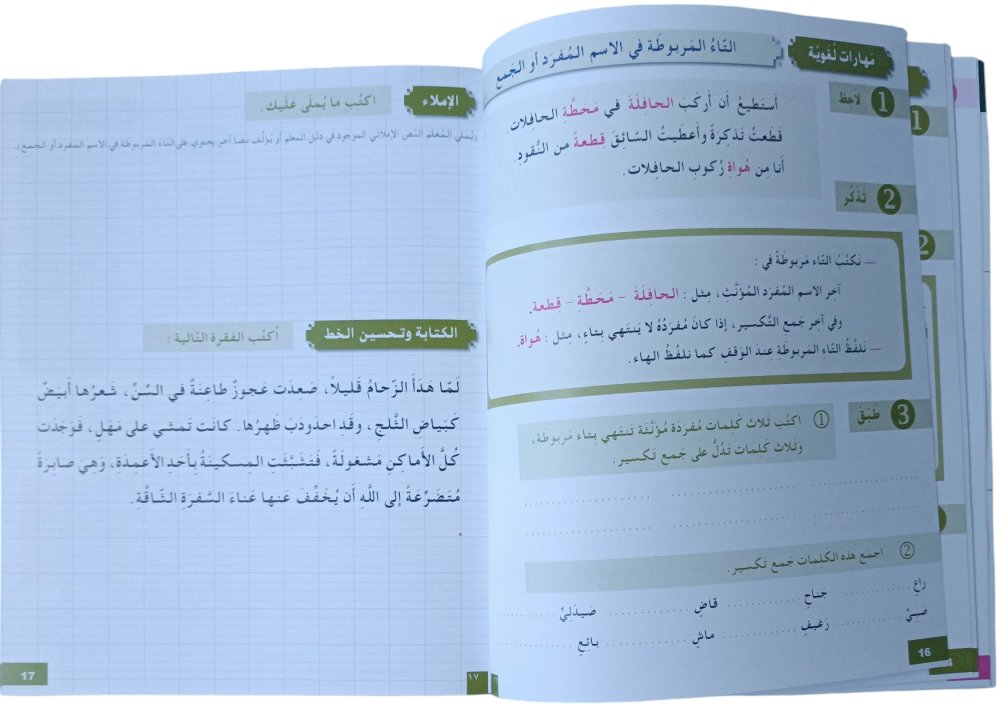 مَهارات لُغَويَّة
التّاءُ المَربوطَة في الاسم المُفرَد أو الجَمع
1 لاحِظ
أَستَطيعُ أَن أَركَبَ الحافِلَةَ في مَحَطَّة الحافِلات.
قَطَعتُ تَذكِرَةً وأَعطَيتُ السّائِقَ قِطعةً من النُّقودِ.
أنا مِن هُواةِ رُكوبِ الحافِلات.
2 تَذَكَّر
— نَكتُبُ التّاء مَربوطَةً في :
آخِر الاسم المُفرَد المُؤَنَّث، مِثل : الحافِلَةَ – مَحَطَّةِ – قِطعة.
وفي آخر جَمع التَّكسير، إذا كانَ مُفرَدُهُ لا يَنتَهي بِتاءٍ، مِثل : هُواة.
— نَلفُظُ التّاء المَربوطَةِ عِندَ الوَقفِ كما نَلفُظُ الهاء.
3 طَبِّق
① اكتُب ثَلاثَ كَلِمات مُفرَدَة مُؤَنَّثَة تَنتَهي بِتاء مَربوطَة،
وَثَلاث كَلِمات تَدُلُّ على جَمع تَكسير.
② اجمَع هذه الكَلمات جَمع تَكسير.
راعٍ جَناح قاضٍ صَيدَليٌّ
صَبِيٌّ رَغيف ماشٍ بائِع
16
الإملاء
اكتُب ما يُملَى عَلَيك.
(يُملي المُعلم النَص الإملائي الموجود في دليل المعلم أو يؤلّف نصًا آخر يحتوي على التّاء المربوطة في الاسم المُفرد أو الجَمع).
الكتابة وتحسين الخط
اُكتُب الفقرة التّالية :
لَمّا هَدَأَ الزّحامُ قَليلاً، صَعدَت عَجوزٌ طاعنَةٌ في السِّنِّ، شَعرُها أَبيَضٌ
كَبَياضِ الثَّلجِ، وقَد احدَودَبَ ظَهرُها. كانَت تَمشي على مَهَلٍ، فَوَجَدَت
كُلَّ الأَماكِنِ مَشغولَةً، فَتَشَبَّثَت المسكينَةُ بأَحَد الأَعمدَة، وَهيَ صابِرَةٌ
مُتَضَرِّعَةٌ إلى اللَّهِ أَن يُخَفِّفَ عَنها عَناءَ السَّفرَةِ الشّاقَّةِ.
17
١٧